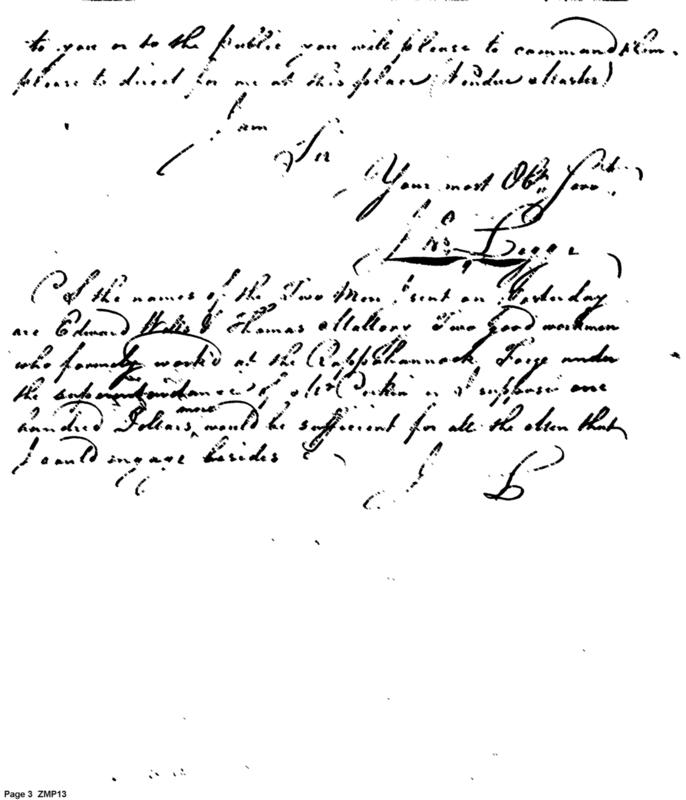 to you or to the Public you will please to command them.
please to direct for me at this place (Vendue Master)
I am
Sir
Your most Obt. Servt.
Jno. Legge
PS the names of the Two Men I sent on Yesterday
are Edward Wells & Thomas Mallory Two good workmen
who formerly work'd at the Rappahannock Forge under
the superintendance of Mr I suppose one
hundred Dollars more would be sufficient for all the Men that
I could engage besides
J L
Page 3 ZMP13